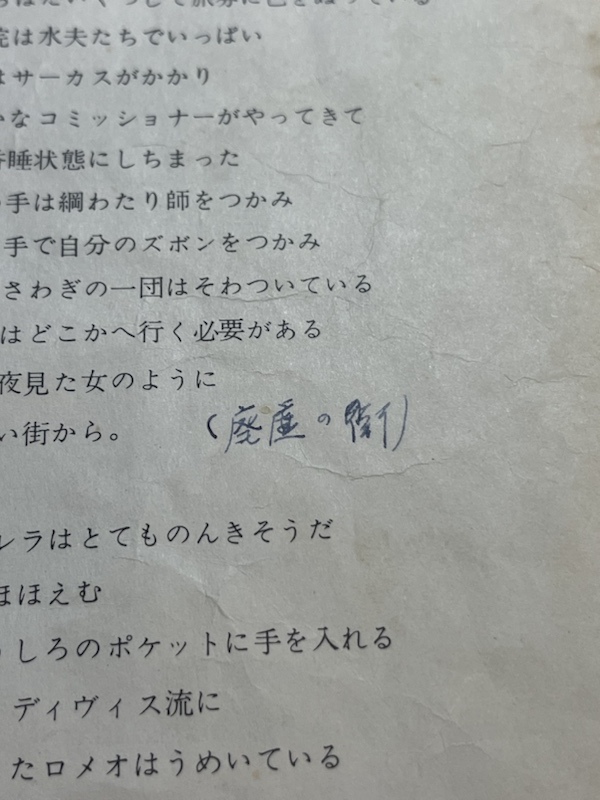 は水夫たちでいっぱい
はサーカスがかかり
なコミッショナーがやってきて
睡状態にしちまった
手は綱わたり師をつかみ
手で自分のズボンをつかみ
さわぎの一団はそわついている
はどこかへ行く必要がある
夜見た女のように
い街から。 (廃墟の街)
レラはとてものんきそうだ
ほほえむ
しろのポケットに手を入れる
ディヴィス流に
たロメオはうめいている